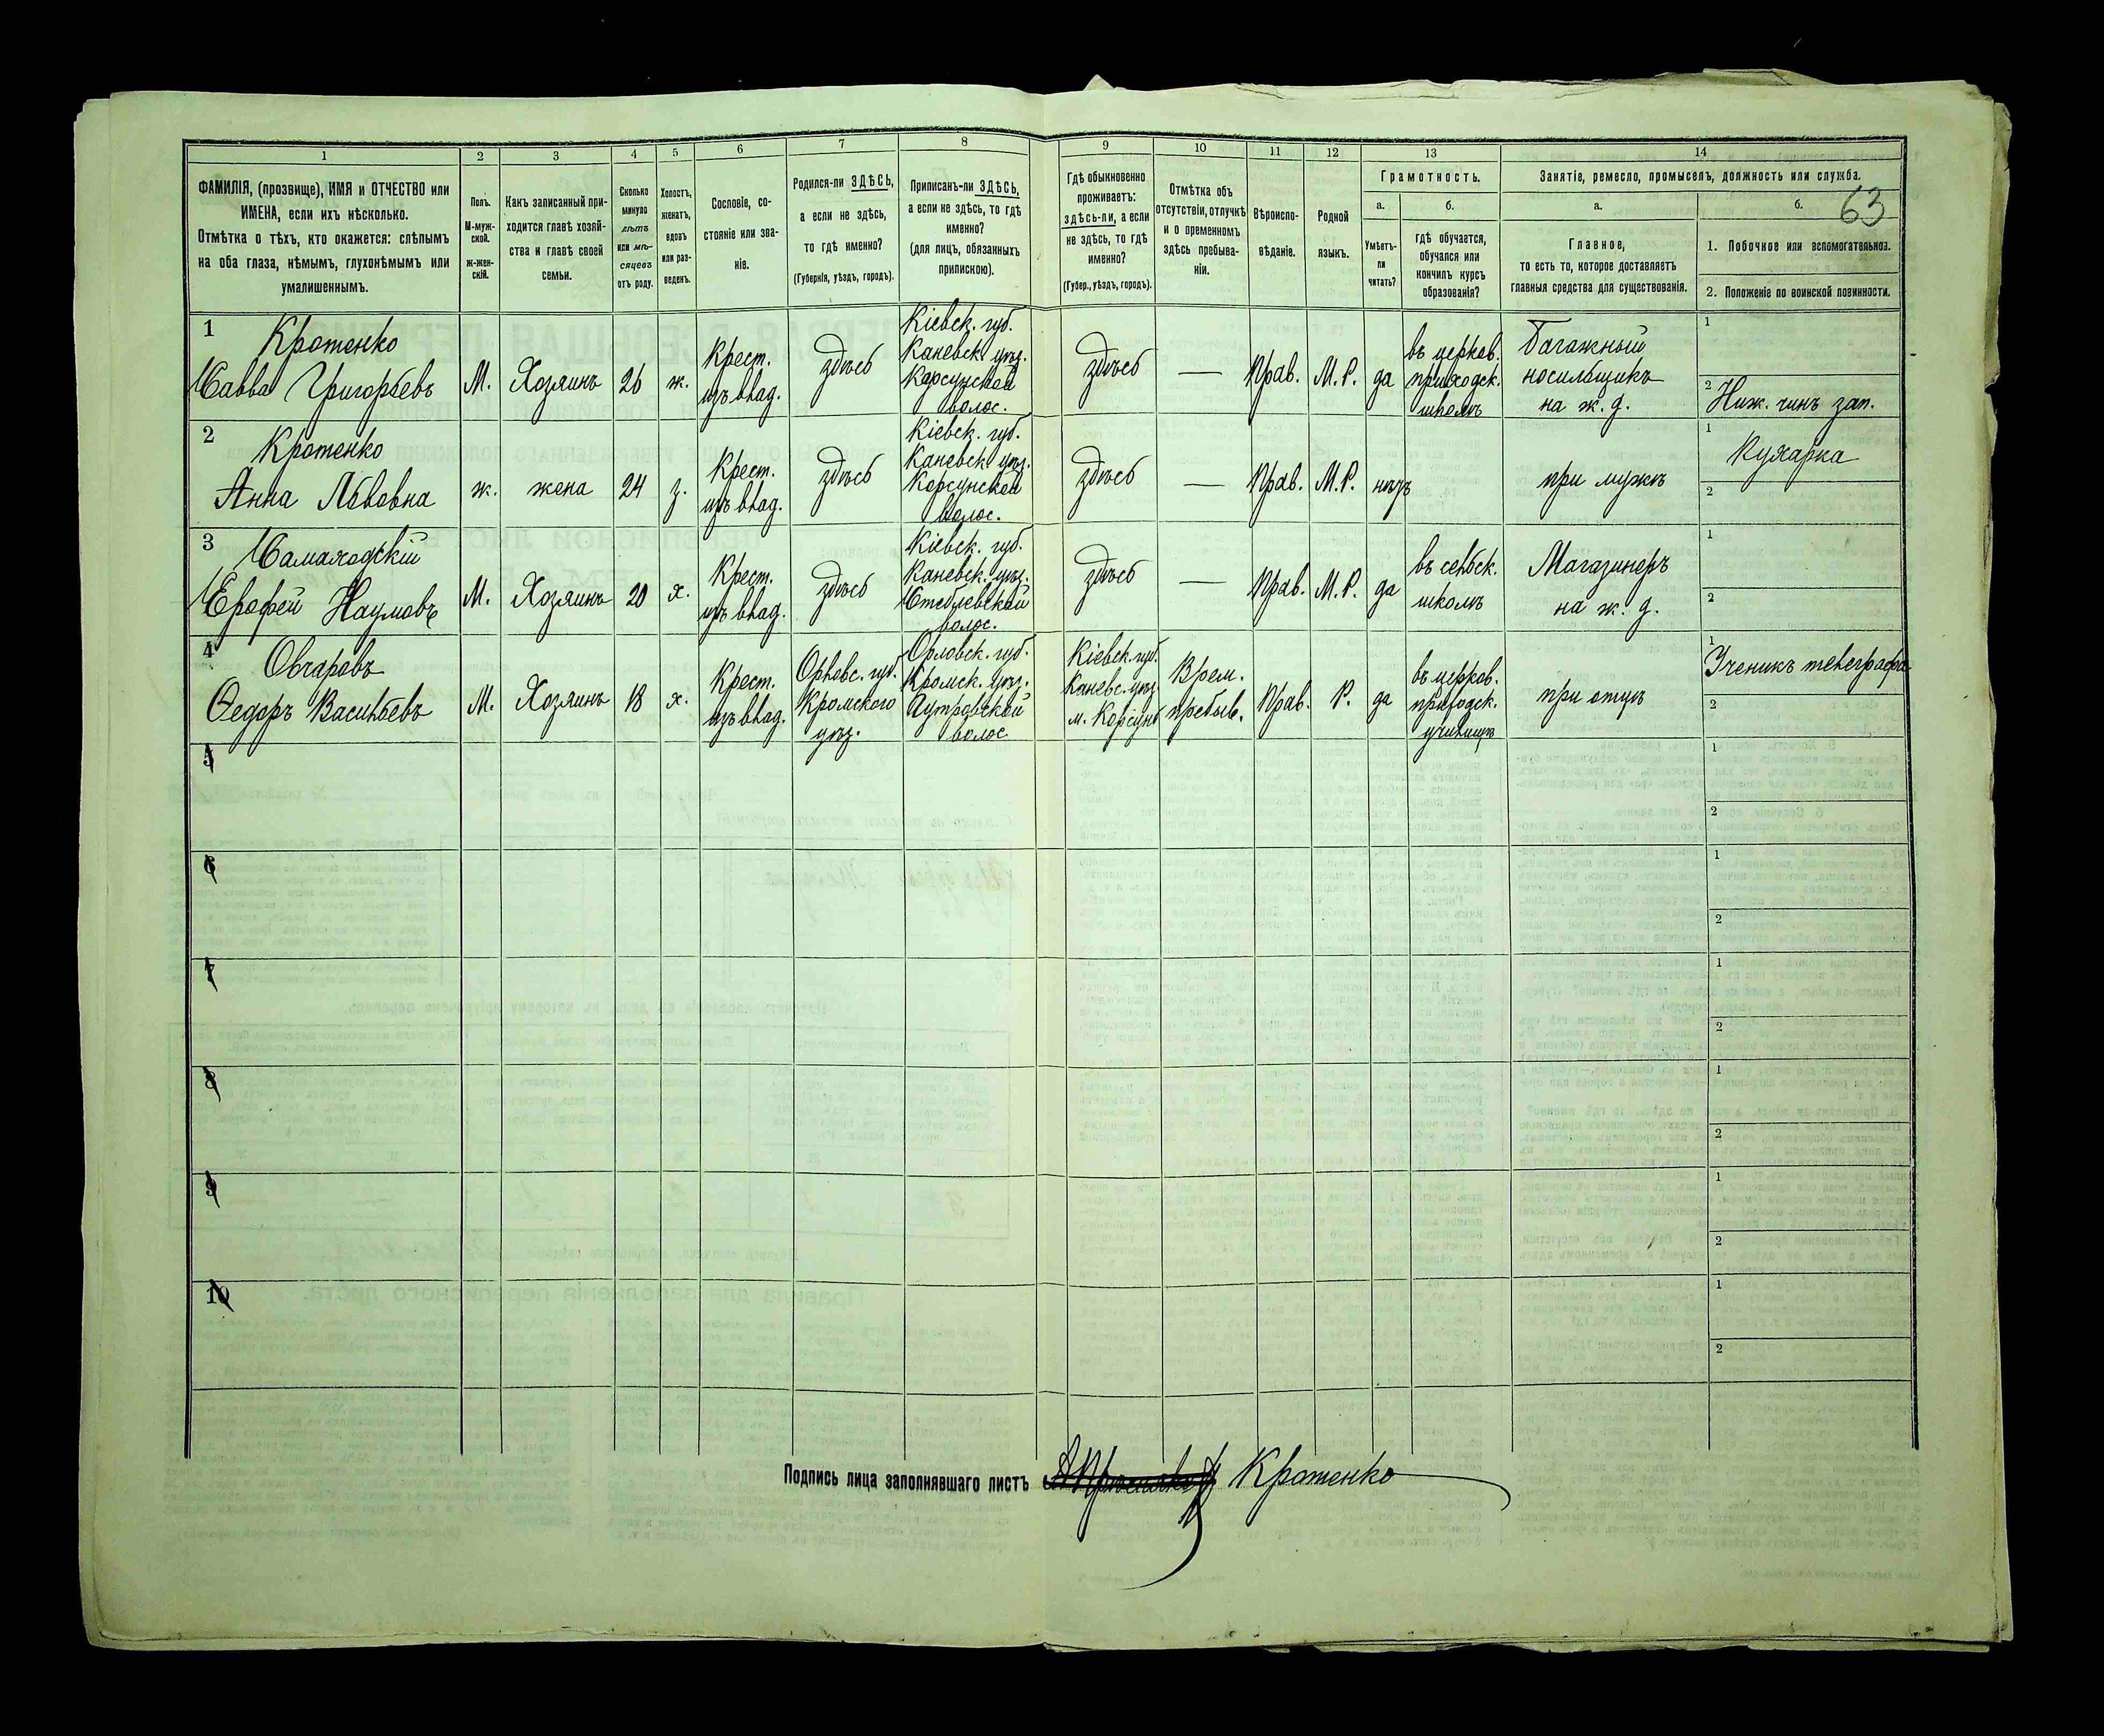 63
1
2
3
4
5
6
7
8
9
10
11
12
13
14
ФАМИЛІЯ, (прозвище), ИМЯ и ОТЧЕСТВО или
ИМЕНА, если ихъ нѣсколько.
Отмѣтка о тѣхъ, кто окажется: слѣпымъ
на оба глаза, нѣмымъ, глухонѣмымъ или
умалишеннымъ.
Полъ.
М-муж-
ской.
ж-жен-
скій.
Какъ записанный при-
ходится главѣ хозяй-
ства и главѣ своей
семьи.
Сколько
минуло
лѣтъ
или мѣ-
сяцевъ
отъ роду.
Холостъ,
женатъ,
вдовъ
или раз-
веденъ.
Сословіе, со-
стояніе или зва-
ніе.
Родился-ли ЗДѢСЬ,
а если не здѣсь,
то гдѣ именно?
(Губернія, уѣздъ, городъ).
Приписанъ-ли ЗДѢСЬ,
а если не здѣсь, то гдѣ
именно?
(для лицъ, обязанныхъ
припискою).
Гдѣ обыкновенно
проживаетъ:
здѣсь-ли, а если
не здѣсь, то гдѣ
именно?
(Губер., уѣздъ, городъ).
Отмѣтка объ
отсутствіи, отлучкѣ
и о временномъ
здѣсь пребыва-
ніи.
Вѣроиспо-
вѣданіе.
Родной
языкъ.
Грамотность.
а.
Умѣетъ-
ли
читать?
б.
гдѣ обучается,
обучался или
кончилъ курсъ
образованія?
Занятіе, ремесло, промыселъ, должность или служба.
а.
Главное,
то есть то, которое доставляетъ
главныя средства для существованія.
б.
1. Побочное или вспомогательное.
2. Положеніе по воинской повинности.
1
Кротенко
Савва Григорьевъ
М.
Хозяинъ
26
ж.
Крест.
изъ влад.
здѣсь
Кіевск. губ.
Каневск. уѣз.
Корсунской
волос.
здѣсь
—
Прав.
М.Р.
да
въ церков.
приходск.
школѣ
Багажный
носильщикъ
на ж. д.
1
2 Ниж. чинъ зап.
2
Кротенко
Анна Львовна
ж.
жена
24
з.
Крест.
изъ влад.
здѣсь
Кіевск. губ.
Каневск. уѣз.
Корсунской
волос.
здѣсь
—
Прав.
М.Р.
нѣтъ
при мужѣ
1
Кухарка
2
3
Самаходскій
Ерофей Наумовъ
М.
Хозяинъ
20
х.
Крест.
изъ влад.
здѣсь
Кіевск. губ.
Каневск. уѣз.
Стеблевской
волос.
здѣсь
—
Прав.
М.Р.
да
въ сельск.
школѣ
Магазинеръ
на ж. д.
1
2
4
Овчаровъ
Ѳедоръ Васильевъ
М.
Хозяинъ
18
х.
Крест.
изъ влад.
Орловс. губ.
Кромского
уѣз.
Орловск. губ.
Кромск. уѣз.
волос
Кіевск. губ.
Каневс. уѣз.
м. Корсунь
Врем.
пребыв.
Прав.
Р.
да
въ церков.
приходск.
училищѣ
при отцѣ
1
Ученикъ телеграфа
2
5
1
2
6
1
2
7
1
2
8
1
2
9
1
2
10
1
2
Подпись лица заполнявшаго листъ Кротенко